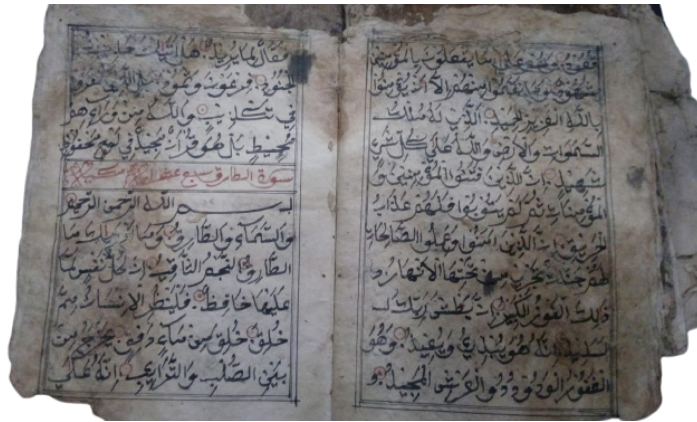 قُعُودٌ وَهُمْ عَلَى مَا يَفْعَلُونَ بِالْمُؤْمِنِينَ
شُهُودٌ وَمَا نَقَمُوا مِنْهُمْ اِلَّا اَنْ يُؤْمِنُوا
بِاللَّهِ الْعَزِيزِ الْحَمِيدِ الَّذِي لَهُ مُلْكُ
السَّمٰوَاتِ وَالْاَرْضِ وَاللَّهُ عَلَى كُلِّ شَيْءٍ
شَهِيدٌ اِنَّ الَّذِينَ فَتَنُوا الْمُؤْمِنِينَ وَ
الْمُؤْمِنَاتِ ثُمَّ لَمْ يَتُوبُوا فَلَهُمْ عَذَابُ
الْحَرِيقِ اِنَّ الَّذِينَ اٰمَنُوا وَعَمِلُوا الصَّالِحَاتِ
لَهُمْ جَنَّاتٌ تَجْرِي مِنْ تَحْتِهَا الْاَنْهَارُ
ذٰلِكَ الْفَوْزُ الْكَبِيرُ اِنَّ بَطْشَ رَبِّكَ لَ
شَدِيدٌ اِنَّهُ هُوَ يُبْدِئُ وَيُعِيدُ وَهُوَ
الْغَفُورُ الْوَدُودُ ذُو الْعَرْشِ الْمَجِيدُ
فَعَّالٌ لِمَا يُرِيدُ هَلْ اَتَاكَ حَدِيثُ
الْجُنُودِ فِرْعَوْنَ وَثَمُودَ بَلِ الَّذِينَ كَفَرُوا
فِي تَكْذِيبٍ وَاللَّهُ مِنْ وَرَاءِهِمْ
مُحِيطٌ بَلْ هُوَ قُرْاٰنٌ مَجِيدٌ فِي لَوْحٍ مَحْفُوظٍ
سورة الطارق سبع عشر مكية
بِسْمِ اللَّهِ الرَّحْمٰنِ الرَّحِيمِ
وَالسَّمَاءِ وَالطَّارِقِ وَمَا اَدْرٰيكَ مَا
الطَّارِقُ النَّجْمُ الثَّاقِبُ اِنْ كُلُّ نَفْسٍ لَمَّا
عَلَيْهَا حَافِظٌ فَلْيَنْظُرِ الْاِنْسَانُ مِمَّ
خُلِقَ خُلِقَ مِنْ مَاءٍ دَافِقٍ يَخْرُجُ مِنْ
بَيْنِ الصُّلْبِ وَالتَّرَائِبِ اِنَّهُ عَلَى